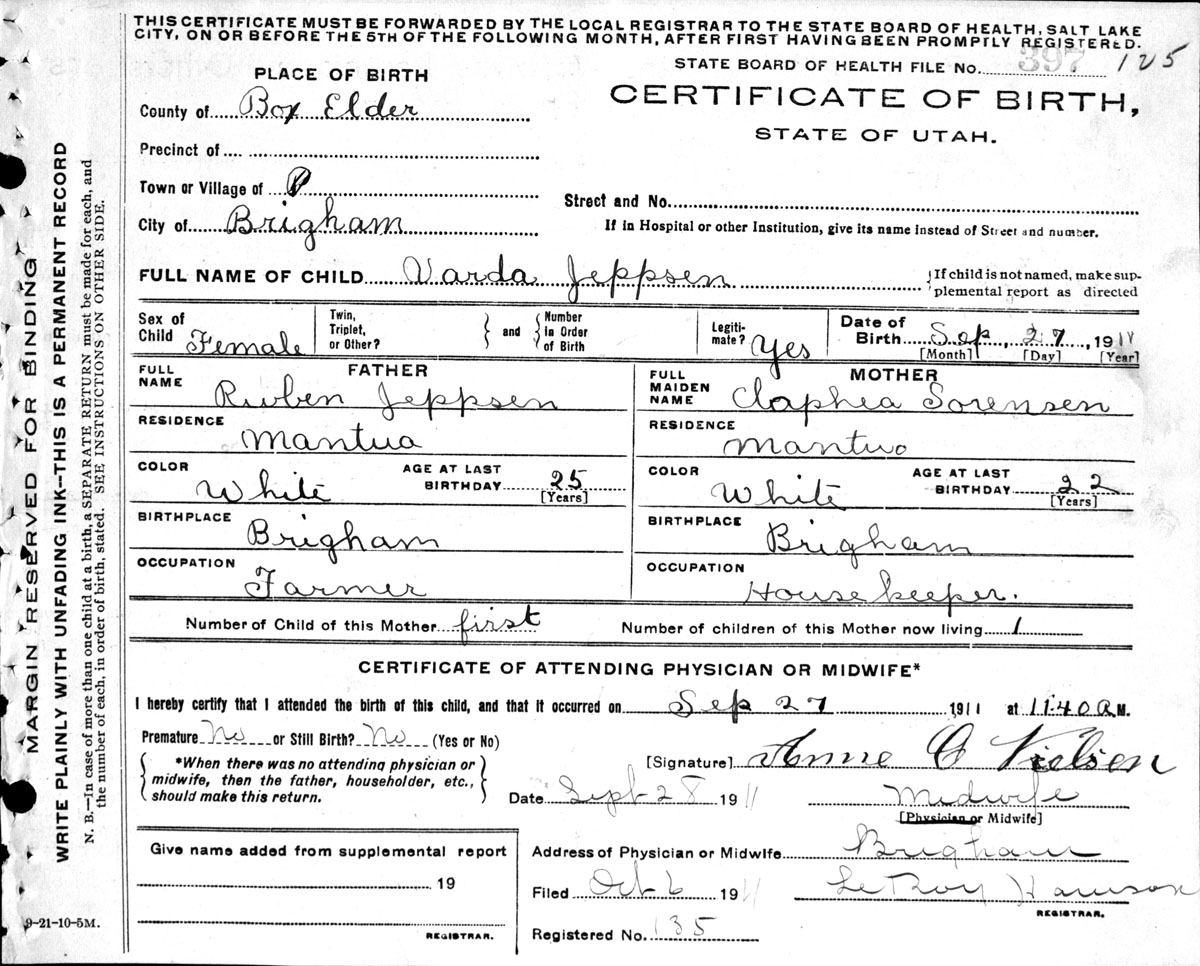 THIS CERTIFICATE MUST BE FORWARDED BY THE LOCAL REGISTRAR TO THE STATE BOARD OF HEALTH, SALT LAKE
CITY, ON OR BEFORE THE 5TH OF THE FOLLOWING MONTH, AFTER FIRST HAVING BEEN PROMPTLY REGISTERED.
STATE BOARD OF HEALTH FILE No. 397 125
PLACE OF BIRTH
CERTIFICATE OF BIRTH,
STATE OF UTAH.
County of Box Elder
Precinct of
Town or Village of
Street and No.
City of Brigham
If in Hospital or other Institution, give its name instead of Street and number.
FULL NAME OF CHILD Varda Jeppsen
{If child is not named, make sup-
plemental report as directed
Sex of Child Female
Twin, Triplet, or Other?
and
Number in Order of Birth
Legiti- mate? Yes
Date of Birth Sep, 27, 1911
[Month] [Day] [Year]
FATHER
FULL NAME Ruben Jeppsen
RESIDENCE Mantua
COLOR White
AGE AT LAST BIRTHDAY 25 [Years]
BIRTHPLACE Brigham
OCCUPATION Farmer
MOTHER
FULL MAIDEN NAME Claphea Sorensen
RESIDENCE Mantua
COLOR White
AGE AT LAST BIRTHDAY 22 [Years]
BIRTHPLACE Brigham
OCCUPATION House keeper.
Number of Child of this Mother first
Number of children of this Mother now living 1
CERTIFICATE OF ATTENDING PHYSICIAN OR MIDWIFE*
I hereby certify that I attended the birth of this child, and that it occurred on Sep 27, 1911 at 11:40 A M.
Premature No or Still Birth? No (Yes or No)
*When there was no attending physician or
midwife, then the father, householder, etc.,
should make this return.
[Signature] Anne C Nielsen
Date Sept 28 1911
Midwife
[Physician or Midwife]
Give name added from supplemental report
19
REGISTRAR.
Address of Physician or Midwife Brigham
Filed Oct 6 1911
LeRoy
REGISTRAR.
Registered No. 135
9-21-10-5M.
MARGIN RESERVED FOR BINDING
WRITE PLAINLY WITH UNFADING INK—THIS IS A PERMANENT RECORD
N. B.—In case of more than one child at a birth, a SEPARATE RETURN must be made for each, and
the number of each, in order of birth, stated. SEE INSTRUCTIONS ON OTHER SIDE.